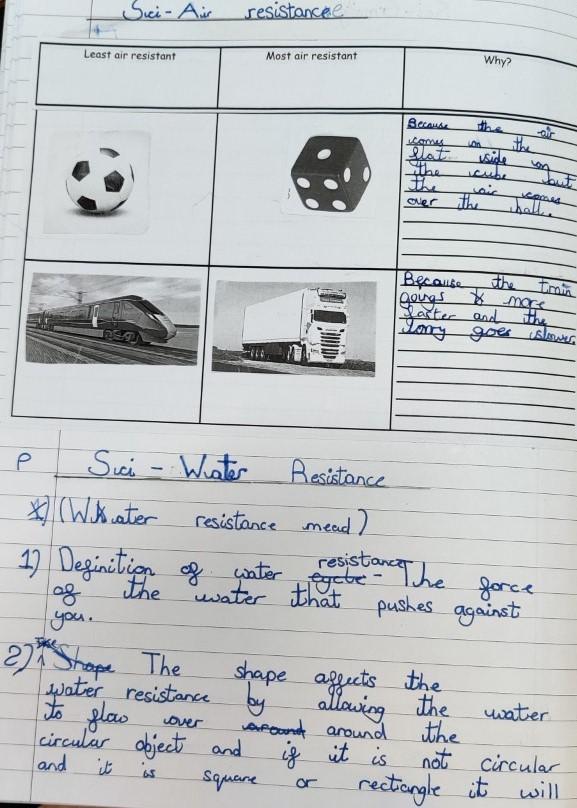 Sci - Air resistance
Least air resistant
Most air resistant
Why?
Because the air
comes on the
flat side on
the cube but
the air comes
over the ball.
Because the train
goings more
faster and the
lorry goes slower
P
Sci - Water Resistance
(Water resistance mead)
1) Definition of water resistance - The force
of the water that pushes against
you.
2) The shape affects the
water resistance by allowing the water
to flow over around the
circular object and if it is not circular
and it is square or rectangle it will